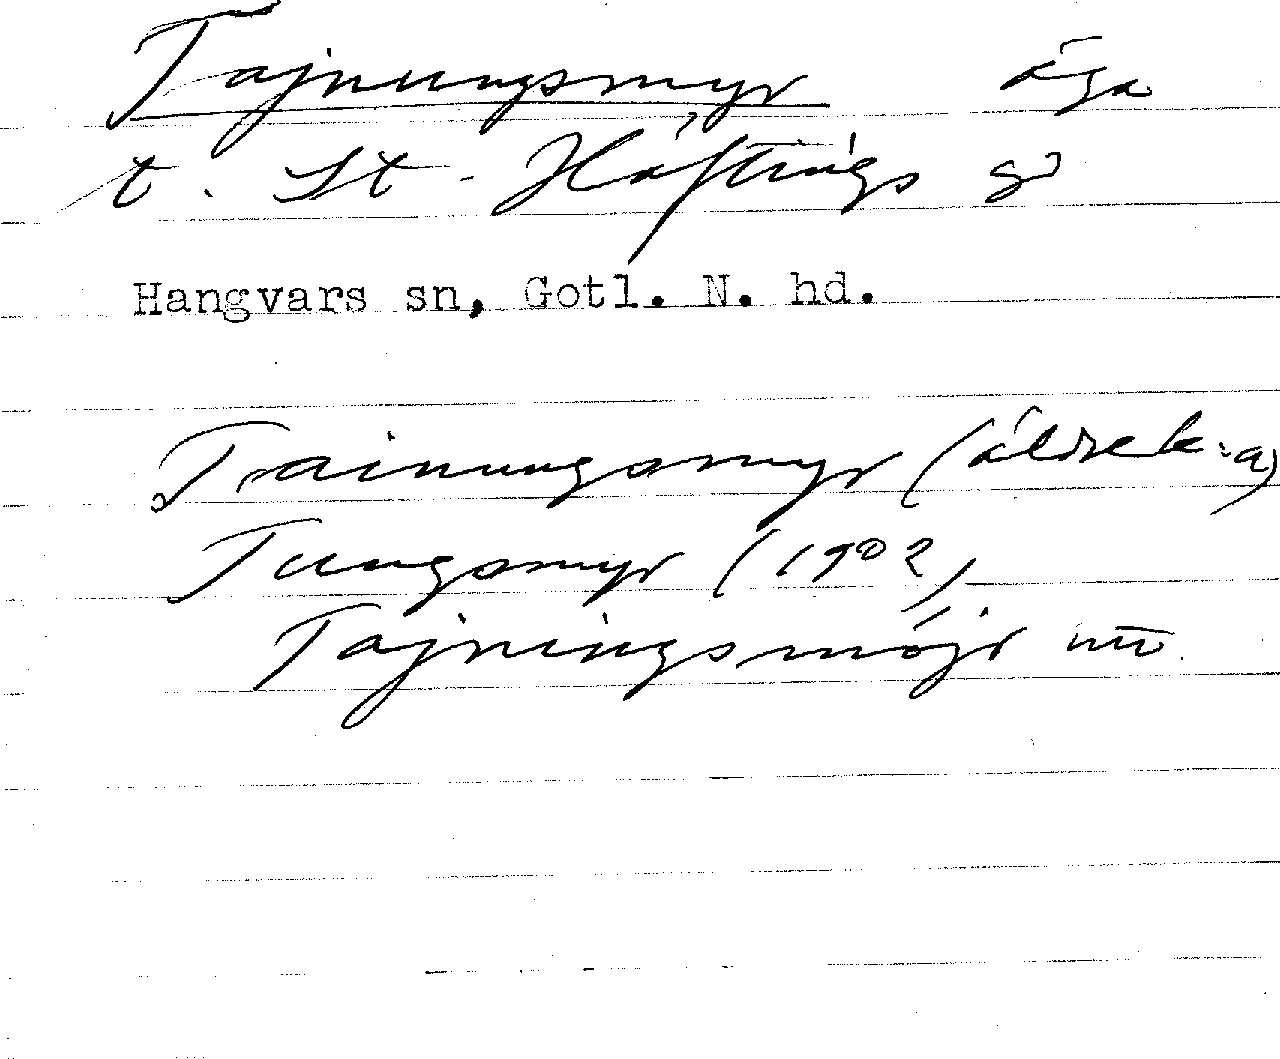 Tajnungsmyr äga
t. St. Häftings gd
Hangvars sn, Gotl. N. hd.
Trainungsmyr (äldre k:a)
Tungsmyr (1902)
Tajningsmöjr nu